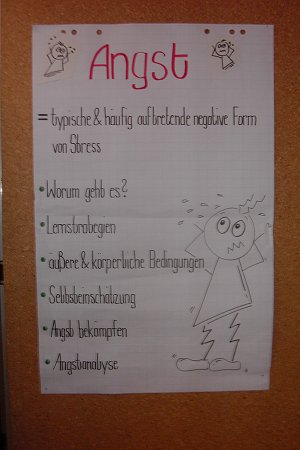 Angst
= typische & häufig auftretende negative Form
von Stress
• Worum geht es?
• Lernstrategien
• äußere & körperliche Bedingungen
• Selbsteinschätzung
• Angst bekämpfen
• Angstanalyse